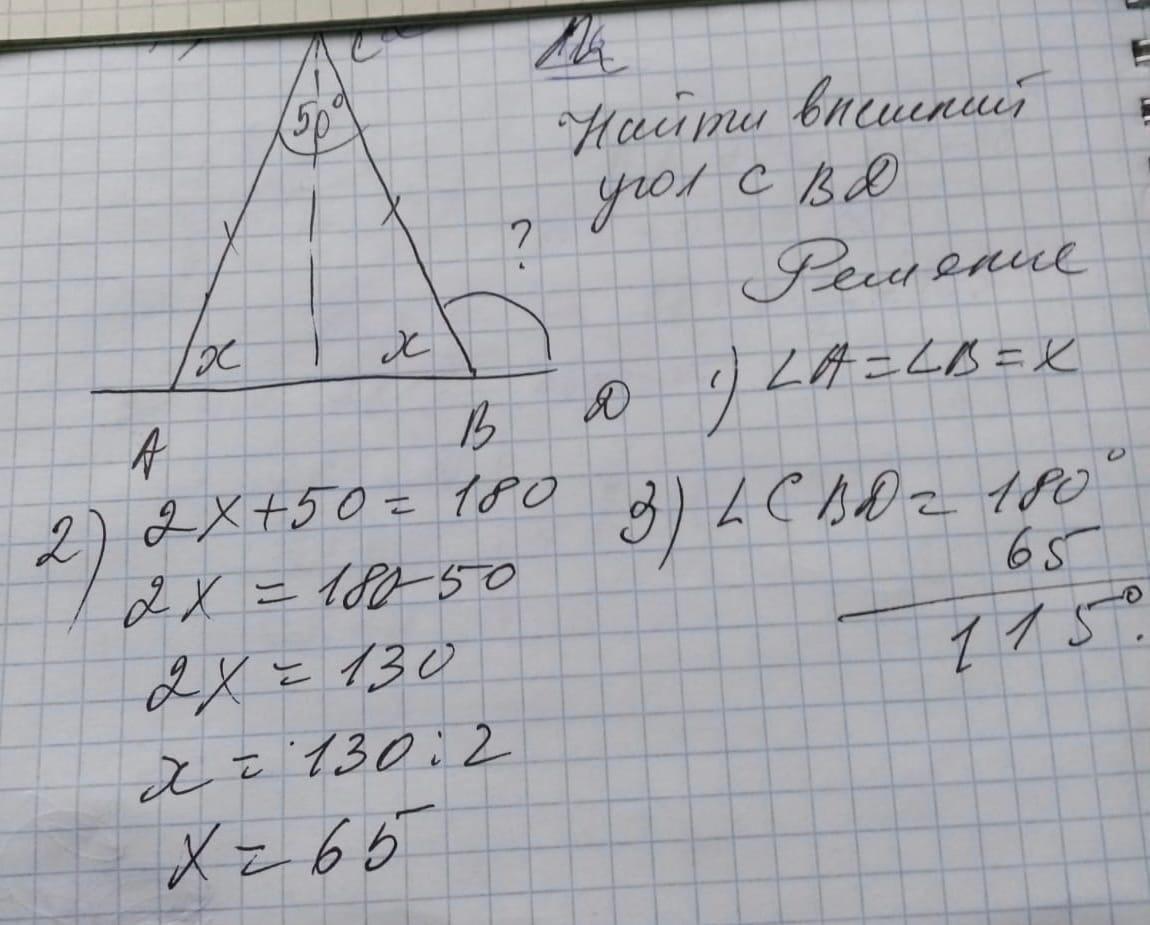 C
50°
Найти внешний
угол C BD
?
Решение
x x
1) ∠A=∠B=x
A B D
2) 2x+50=180
2x = 180-50
2x = 130
x = 130:2
x = 65
3) ∠CBD= 180°
65
115°.